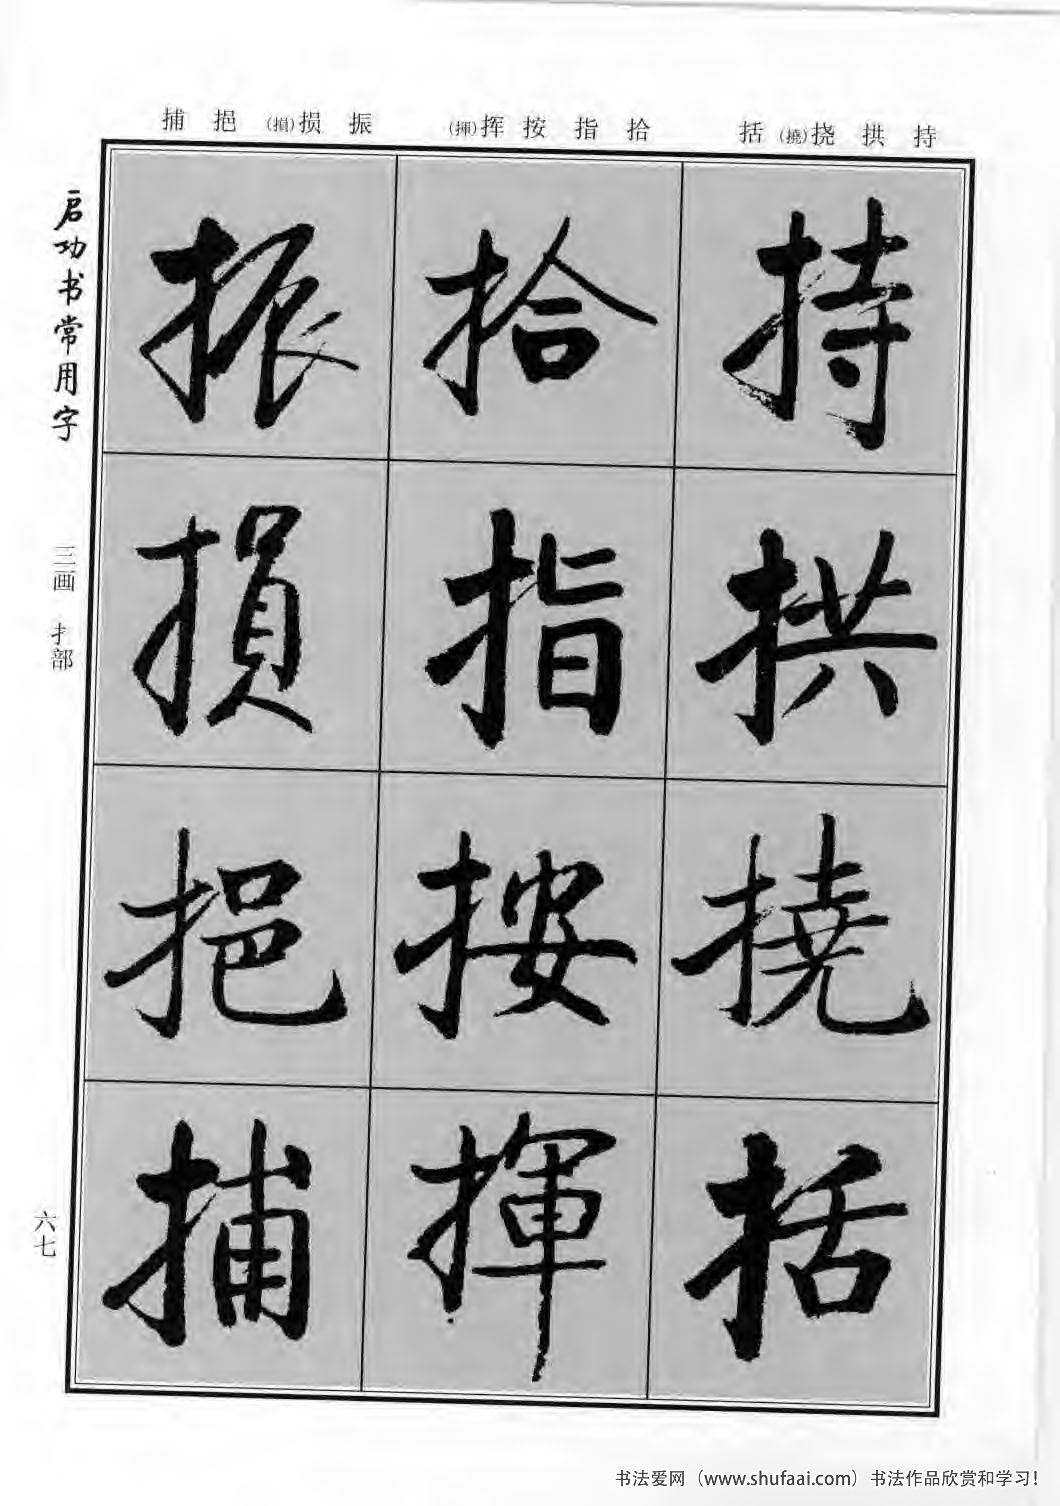 捕 挹 (損)损 振 (揮)挥 按 指 拾 括 (撓)挠 拱 持
启功书常用字
三画 扌部
六七
振 拾 持
損 指 拱
挹 按 撓
捕 揮 括
书法爱网（www.shufaai.com）书法作品欣赏和学习！